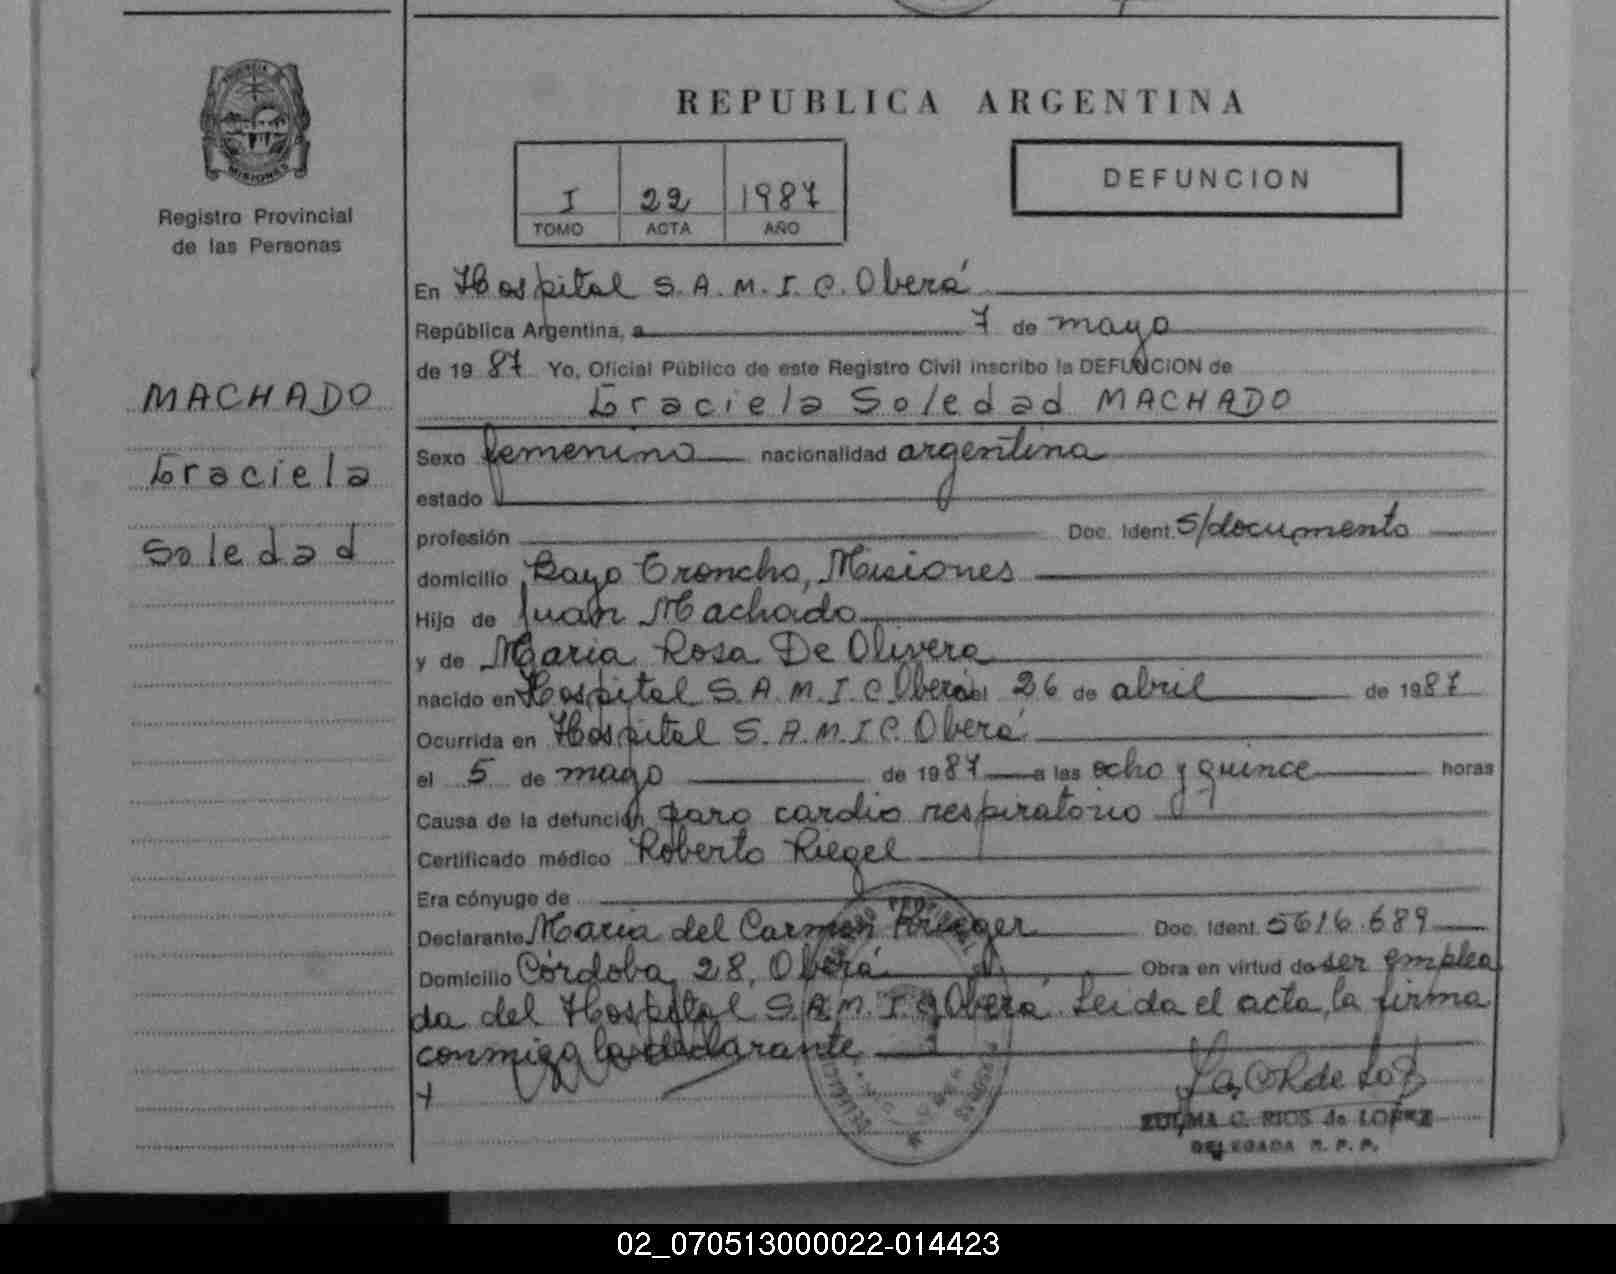 PROVINCIA
MISIONES
Registro Provincial
de las Personas
MACHADO
Graciela
Soledad
REPUBLICA ARGENTINA
I 22 1987
TOMO ACTA AÑO
DEFUNCION
En Hospital S.A.M.I.C. Oberá
República Argentina, a 7 de mayo
de 19 87 Yo, Oficial Público de este Registro Civil inscribo la DEFUNCION de
Graciela Soledad MACHADO
Sexo femenino nacionalidad argentina
estado
profesión Doc. Ident. S/documento
domicilio Bayo Troncho, Misiones
Hijo de Juan Machado
y de Maria Rosa De Olivera
nacido en Hospital S.A.M.I.C. Oberá el 26 de abril de 1987
Ocurrida en Hospital S.A.M.I.C. Oberá
el 5 de mayo de 1987 a las ocho y quince horas
Causa de la defunción paro cardio respiratorio
Certificado médico Roberto Riegel
Era cónyuge de
Declarante Maria del Carmen Krieger Doc. Ident. 5616.689
Domicilio Córdoba 28, Oberá Obra en virtud de ser emplea
da del Hospital S.A.M.I.C. Oberá. Leida el acta, la firma
conmigo la declarante
ZULMA C. RIOS de LOPEZ
DELEGADA R. P. P.
02_070513000022-014423